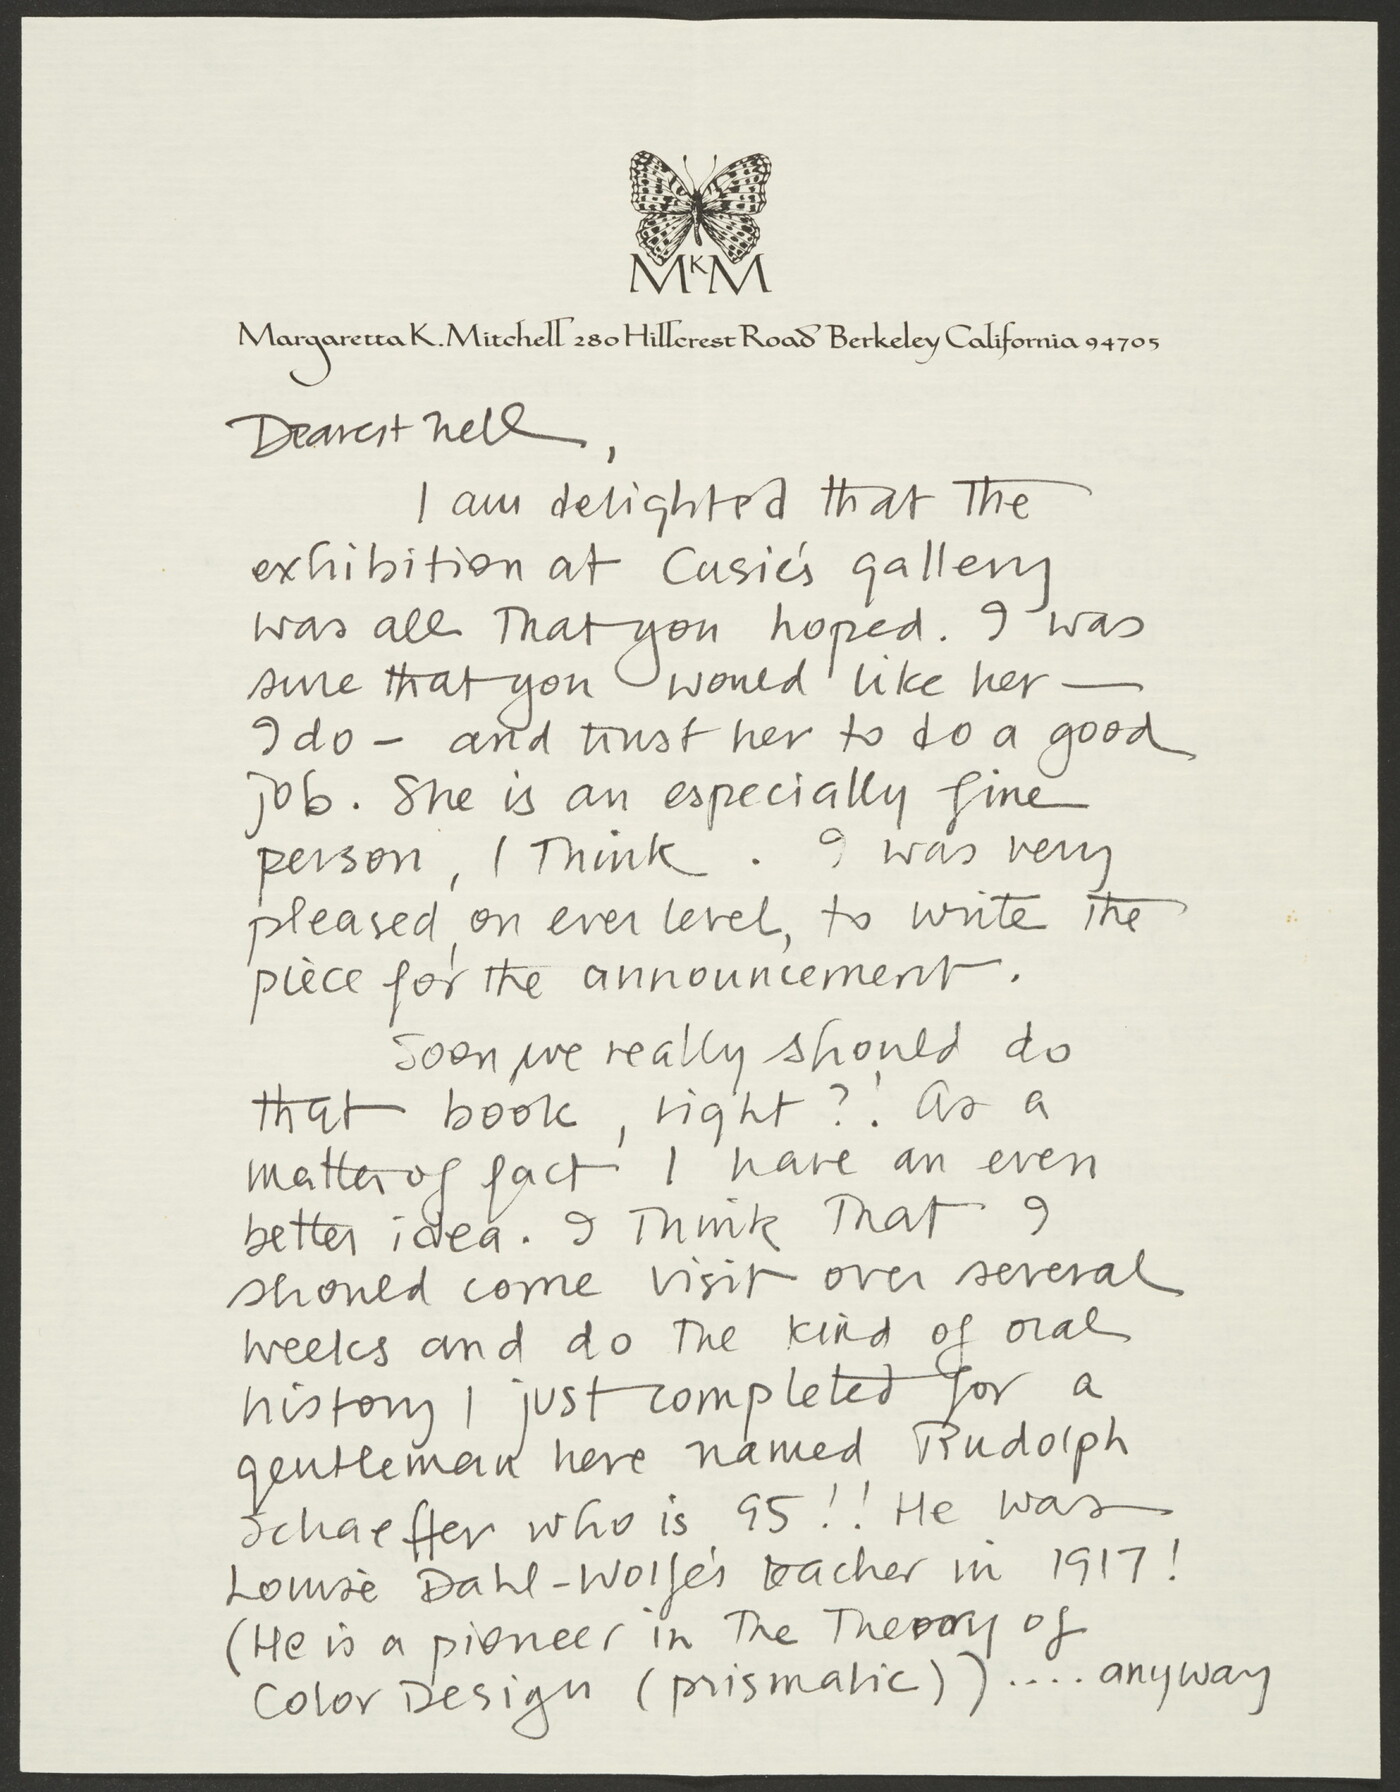 MKM
Margaretta K. Mitchell 280 Hillcrest Road Berkeley California 94705
Dearest Nell,
I am delighted that the
exhibition at Cusie's gallery
was all that you hoped. I was
sure that you would like her —
I do – and trust her to do a good
job. She is an especially fine
person, I think. I was very
pleased, on ever level, to write the
piece for the announcement.
Soon we really should do
that book, right?! As a
matter of fact I have an even
better idea. I think that I
should come visit over several
weeks and do the kind of oral
history I just completed for a
gentleman here named Rudolph
Schaeffer who is 95!! He was
Louise Dahl-Wolfe's teacher in 1917!
(He is a pioneer in the Theory of
Color Design (prismatic)) .... anyway